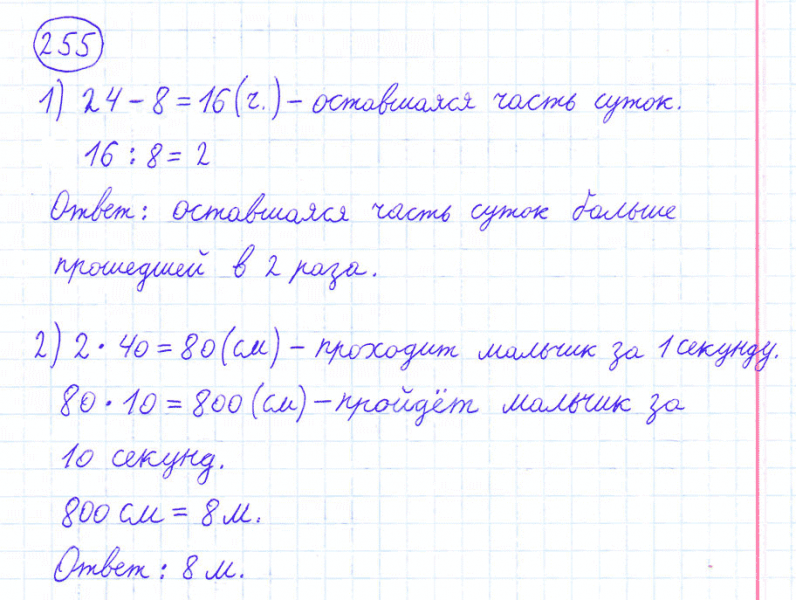 255
1) 24 - 8 = 16 (ч.) - оставшаяся часть суток.
16 : 8 = 2
Ответ: оставшаяся часть суток больше
прошедшей в 2 раза.
2) 2 · 40 = 80 (см) - проходит мальчик за 1 секунду.
80 · 10 = 800 (см) - пройдёт мальчик за
10 секунд.
800 см = 8 м.
Ответ: 8 м.